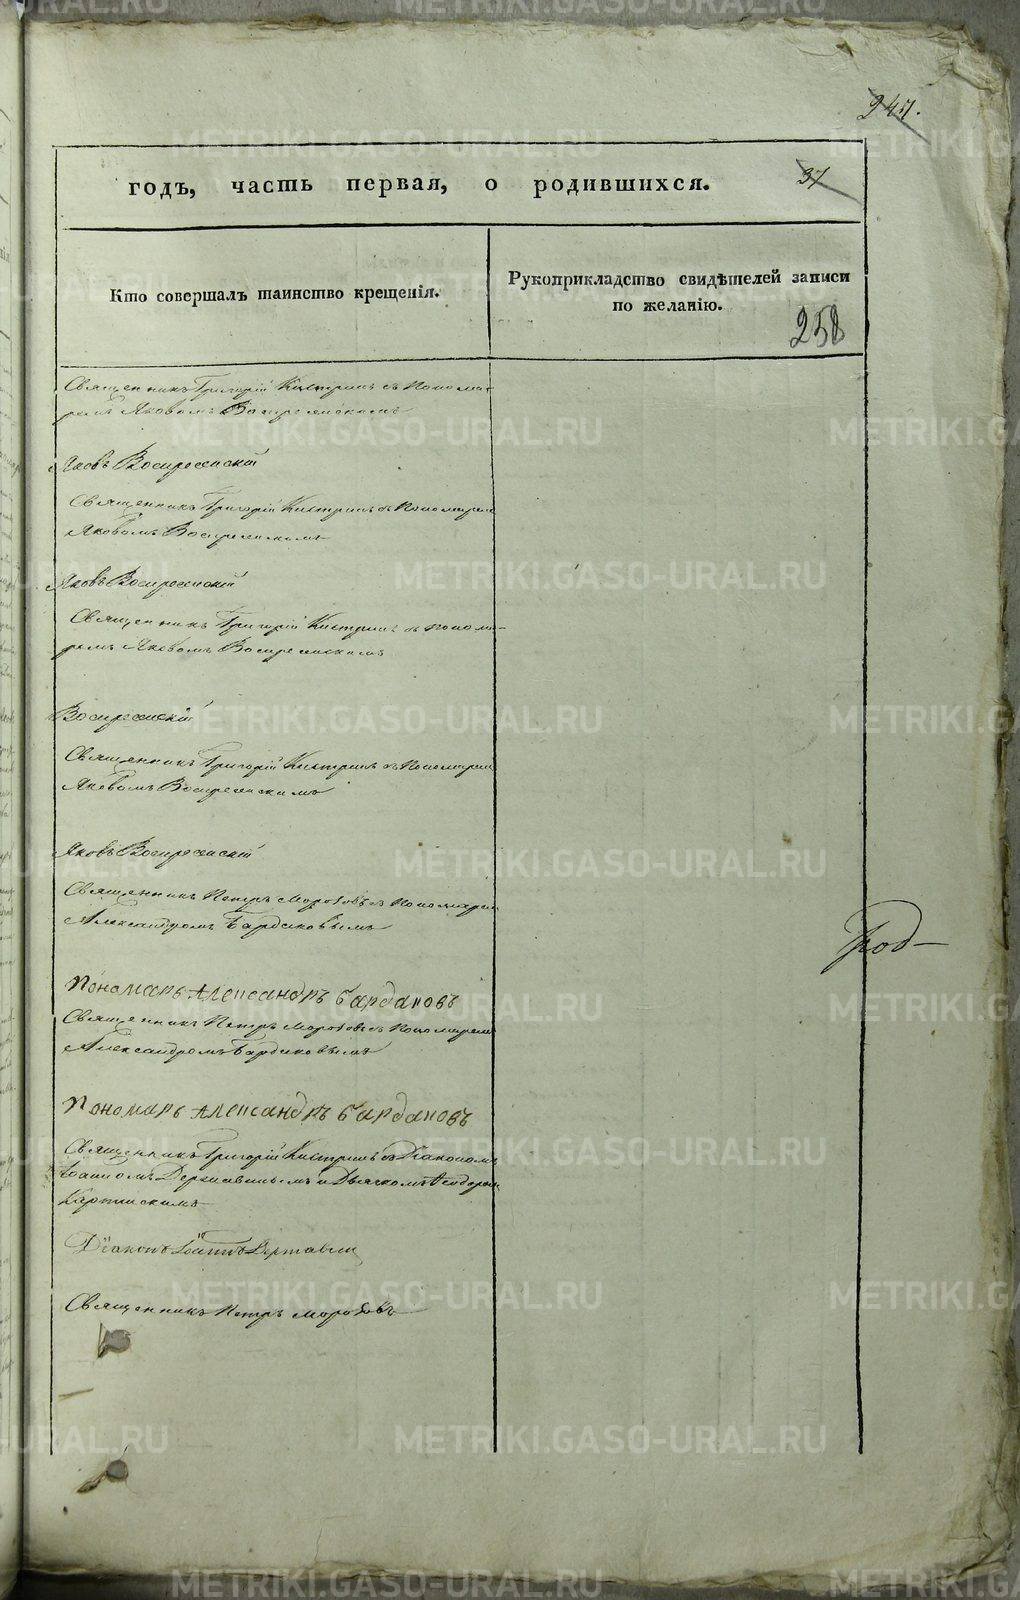 247.
годъ, часть первая, о родившихся.
37
Кто совершалъ таинство крещенія.
Рукоприкладство свидѣтелей записи
по желанію.
258
Священникъ Григорій Кистринъ съ Понома-
ремъ Яковомъ Воскресенскимъ
Яковъ Воскресенскій
Священникъ Григорій Кистринъ съ Пономаремъ
Яковомъ Воскресенскимъ
Яковъ Воскресенскій
Священникъ Григорій Кистринъ съ Понома-
ремъ Яковомъ Воскресенскимъ
Воскресенскій
Священникъ Григорій Кистринъ съ Пономаремъ
Яковомъ Воскресенскимъ
Яковъ Воскресенскій
Священникъ Петръ Морозовъ съ Пономаремъ
Александромъ Бардаковымъ
Пономарь Александръ Бардаковъ
Священникъ Петръ Морозовъ съ Пономаремъ
Александромъ Бардаковымъ
Пономарь Александръ Бардаковъ
Священникъ Григорій Кистринъ съ Діакономъ
Іоанномъ Державинымъ и Дьячкомъ Ѳеодоромъ
Діаконъ Іоаннъ Державин
Священникъ Петръ Морозовъ
METRIKI.GASO-URAL.RU